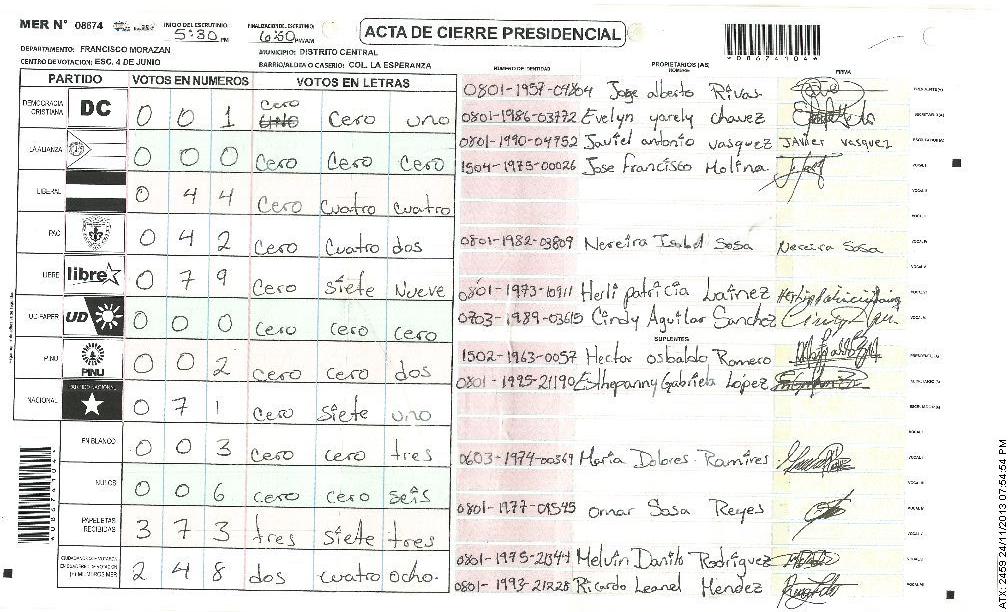 MER N° 08674 INICIO DEL ESCRUTINIO 5:30 PM FINALIZACION DEL ESCRUTINIO 6:50 PM/AM ACTA DE CIERRE PRESIDENCIAL
*08674104*
DEPARTAMENTO: FRANCISCO MORAZAN MUNICIPIO: DISTRITO CENTRAL
CENTRO DE VOTACION: ESC. 4 DE JUNIO BARRIO/ALDEA O CASERIO: COL. LA ESPERANZA
PARTIDO VOTOS EN NUMEROS VOTOS EN LETRAS
DEMOCRACIA CRISTIANA DC 0 0 1 cero uno cero uno
LA ALIANZA 0 0 0 cero cero cero
LIBERAL 0 4 4 cero cuatro cuatro
PAC 0 4 2 cero cuatro dos
LIBRE libre 0 7 9 cero siete nueve
UD FAPER UD 0 0 0 cero cero cero
PINU PINU 0 0 2 cero cero dos
NACIONAL 0 7 1 cero siete uno
EN BLANCO 0 0 3 cero cero tres
NULOS 0 0 6 cero cero seis
PAPELETAS RECIBIDAS 3 7 3 tres siete tres
2 4 8 dos cuatro ocho.
*08674104*
NUMERO DE IDENTIDAD PROPIETARIOS (AS) NOMBRE FIRMA
Jorge alberto Rivas
0801-1986-03772 Evelyn yarely chavez
0801-1990-04952 Javiel antonio vasquez JAvier vasquez
1504-1975-00026 Jose Francisco Molina
0801-1982-03809 Nereira Isabel Sosa Nereira Sosa
0801-1973-10911 Herli patricia Lainez
0703-1989-03615 Cindy Aguilar Sanchez
SUPLENTES
1502-1963-0057 Hector osbaldo Romero
0801-1995-21190 Esthepanny Gabriela Lopez
0603-1974-00369 Maria Dolores Ramires
0801-1977-01545 Omar Sosa Reyes
Melvin Danilo Rodriguez
0801-1993-21228 Ricardo Leanel Mendez
ATX.2459 24/11/2013 07:54:54 PM